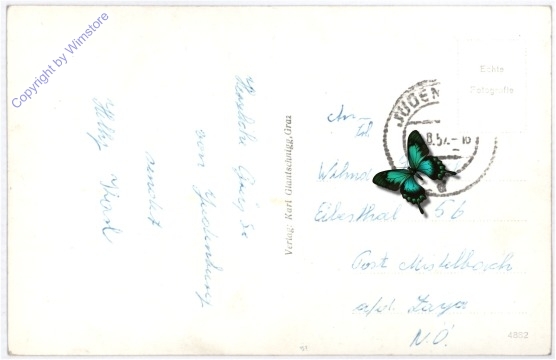 Copyright by Wimstore
Herzliche Grüße
von Judenburg
sendet
Verlag: Karl Glantschnigg, Graz
Echte
Fotografie
JUDEN
8.52-16
An
Wilma
Eibesthal 56
Post Mistelbach
a/d. Zaya
N.Ö.
4882